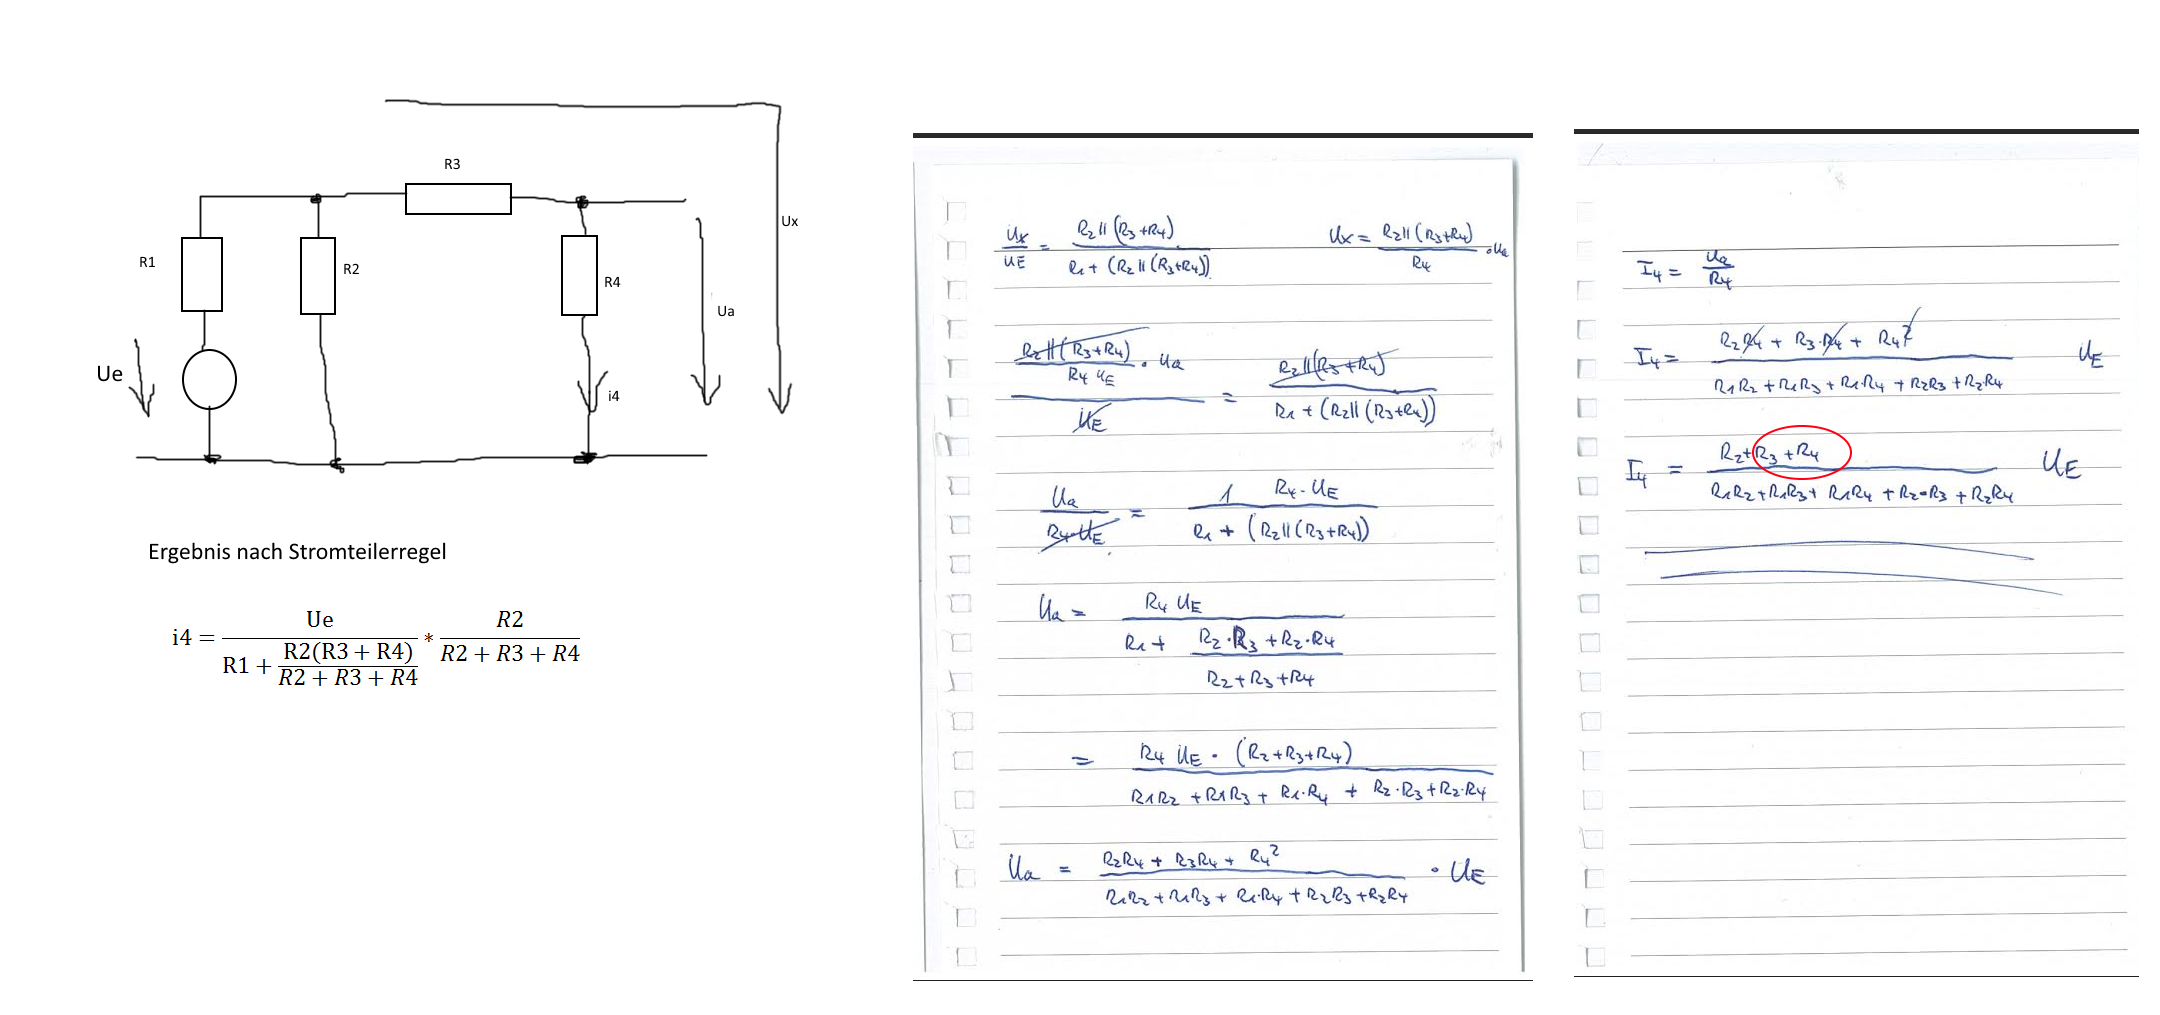 R3
Ux
R1
R2
R4
Ua
Ue
i4
Ergebnis nach Stromteilerregel
i4 = Ue / (R1 + R2(R3 + R4) / (R2 + R3 + R4)) * R2 / (R2 + R3 + R4)
Ux / UE = R2 || (R3+R4) / (R1 + (R2 || (R3+R4)))
Ux = R2 || (R3+R4) / R4 · Ua
(R2 || (R3+R4) / (R4 UE) · Ua) / UE = R2 || (R3+R4) / (R1 + (R2 || (R3+R4)))
Ua / (R4·UE) = 1 R4·UE / (R1 + (R2 || (R3+R4)))
Ua = R4 UE / (R1 + (R2·R3 + R2·R4) / (R2+R3+R4))
= R4 UE · (R2+R3+R4) / (R1R2 + R1R3 + R1·R4 + R2·R3 + R2·R4)
Ua = (R2R4 + R3R4 + R4²) / (R1R2 + R1R3 + R1·R4 + R2R3 + R2R4) · UE
I4 = Ua / R4
I4 = (R2R4 + R3·R4 + R4²) / (R1R2 + R1R3 + R1·R4 + R2R3 + R2·R4) UE
I4 = (R2+R3+R4) / (R1R2+R1R3+ R1R4 + R2·R3 + R2R4) UE